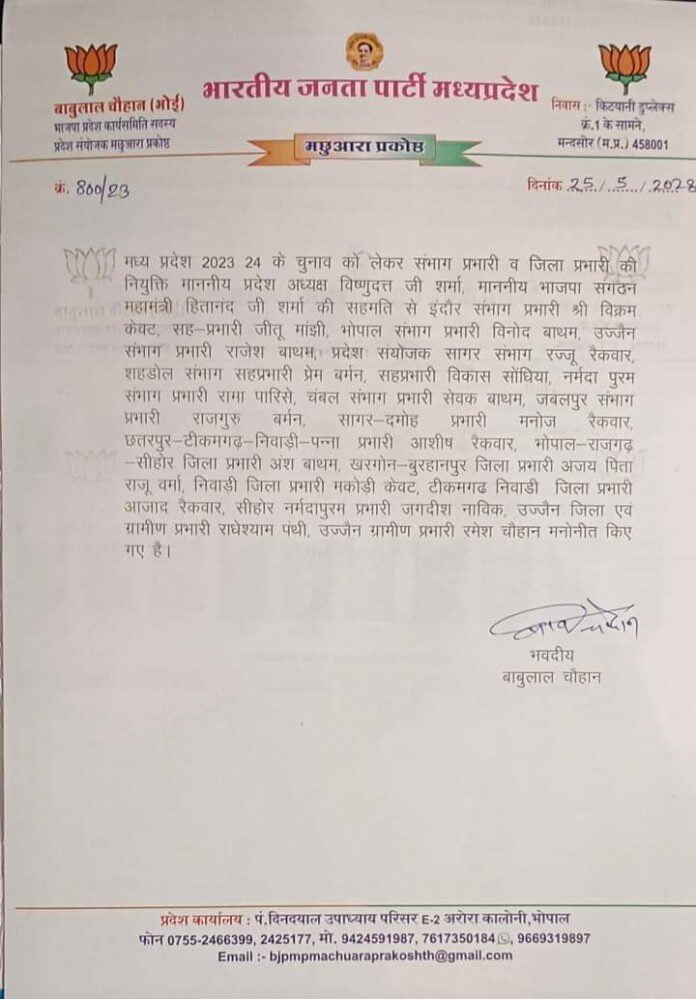 भारतीय जनता पार्टी मध्यप्रदेश
बाबुलाल चौहान (भोई)
भाजपा प्रदेश कार्यसमिति सदस्य
प्रदेश संयोजक मछुआरा प्रकोष्ठ
निवास :- किटयानी डुप्लेक्स
क्रं.1 के सामने,
मन्दसौर (म.प्र.) 458001
मछुआरा प्रकोष्ठ
क्रं. 800/23
दिनांक 25/5/2023
मध्य प्रदेश 2023 24 के चुनाव को लेकर संभाग प्रभारी व जिला प्रभारी की
नियुक्ति माननीय प्रदेश अध्यक्ष विष्णुदत्त जी शर्मा, माननीय भाजपा संगठन
महामंत्री हितानंद जी शर्मा की सहमति से इंदौर संभाग प्रभारी श्री विक्रम
केवट, सह–प्रभारी जीतू मांझी, भोपाल संभाग प्रभारी विनोद बाथम, उज्जैन
संभाग प्रभारी राजेश बाथम, प्रदेश संयोजक सागर संभाग रज्जू रैकवार,
शहडोल संभाग सहप्रभारी प्रेम बर्मन, सहप्रभारी विकास सोंधिया, नर्मदा पुरम
संभाग प्रभारी रामा पारिसे, चंबल संभाग प्रभारी सेवक बाथम, जबलपुर संभाग
प्रभारी राजगुरु बर्मन, सागर–दमोह प्रभारी मनोज रैकवार,
छतरपुर–टीकमगढ़–निवाड़ी–पन्ना प्रभारी आशीष रैकवार, भोपाल–राजगढ़
–सीहोर जिला प्रभारी अंश बाथम, खरगोन–बुरहानपुर जिला प्रभारी अजय पिता
राजू वर्मा, निवाड़ी जिला प्रभारी मकोड़ी केवट, टीकमगढ निवाडी जिला प्रभारी
आजाद रैकवार, सीहोर नर्मदापुरम प्रभारी जगदीश नाविक, उज्जैन जिला एवं
ग्रामीण प्रभारी राधेश्याम पंथी, उज्जैन ग्रामीण प्रभारी रमेश चौहान मनोनीत किए
गए है।
भवदीय
बाबुलाल चौहान
प्रदेश कार्यालय : पं.दिनदयाल उपाध्याय परिसर E-2 अरोरा कालोनी,भोपाल
फोन 0755-2466399, 2425177, मो. 9424591987, 7617350184, 9669319897
Email :- bjpmpmachuaraprakoshth@gmail.com